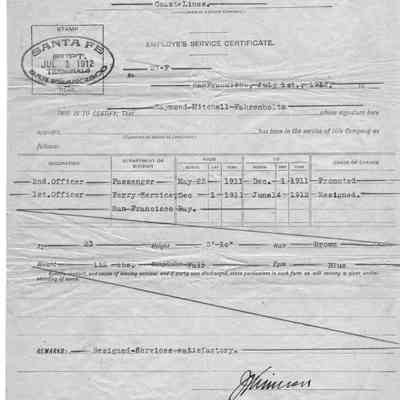 Coast Lines.
STAMP
SANTA FE
SUP'T.
JUL 1 1912
TERMINALS
SAN FRANCISCO
HERE
EMPLOYE'S SERVICE CERTIFICATE.
No. 27-F
San Francisco, July 1st, 1912. 19
THIS IS TO CERTIFY, That Raymond Mitchell Fahrenholtz whose signature here
appears, has been in the service of this Company as
follows:
OCCUPATION DEPARTMENT OR DIVISION FROM TO CAUSE OF CHANGE
MONTH DAY YEAR MONTH DAY YEAR
2nd.Officer Passenger May 22 1911 Dec. 1 1911 Promoted
1st.Officer Ferry Service, Dec 1 1911 June 14 1912 Resigned.
San Francisco Bay.
Age 23 Height 5'-10" Hair Brown
Weight lbs. Complexion Fair Eyes Blue
REMARKS: Resigned-Services satisfactory.